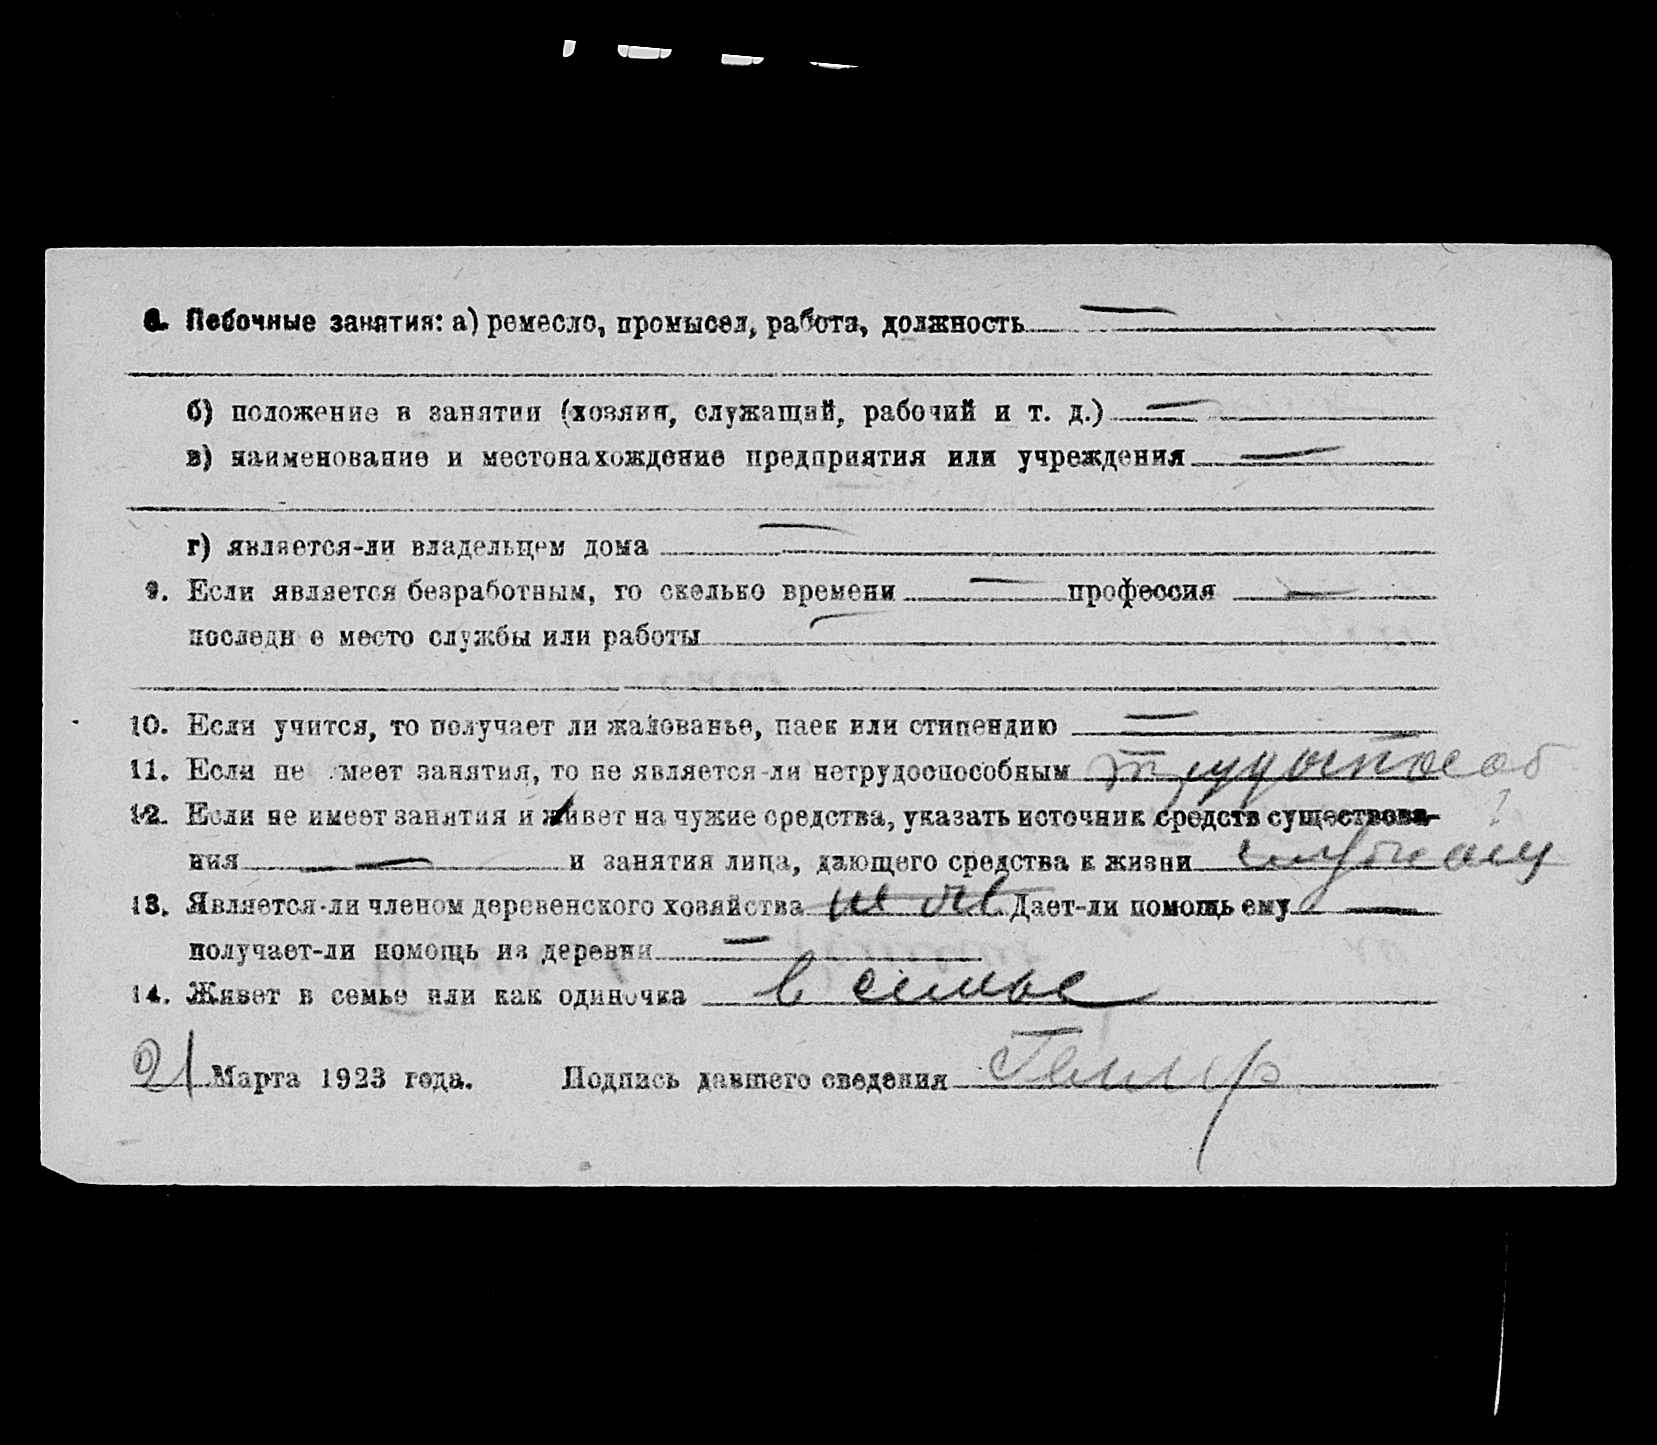 8. Побочные занятия: а) ремесло, промысел, работа, должность —
б) положение в занятии (хозяин, служащий, рабочий и т. д.) —
в) наименование и местонахождение предприятия или учреждения —
г) является-ли владельцем дома —
9. Если является безработным, то сколько времени — профессия —
последн е место службы или работы —
10. Если учится, то получает ли жалованье, паек или стипендию —
11. Если не имеет занятия, то не является-ли нетрудоспособным трудоспособ
12. Если не имеет занятия и живет на чужие средства, указать источник средств существова-
ния — и занятия лица, дающего средства к жизни служащ
13. Является-ли членом деревенского хозяйства Дает-ли помощь ему —
получает-ли помощь из деревни —
14. Живет в семье или как одиночка в семье
21 Марта 1923 года. Подпись давшего сведения